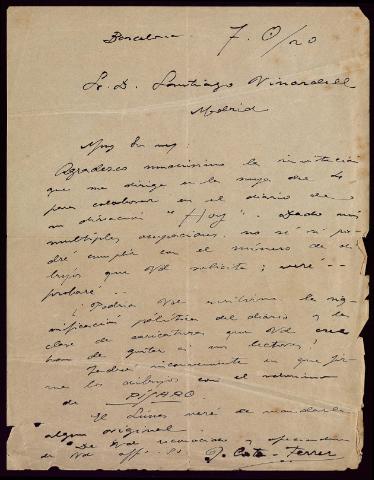 Barcelona 7. O/20
Sr. D. Santiago Vinardell
Madrid
Muy Sr. mío:
Agradezco muchísimo la invitación
que me dirige en la suya del 4
para colaborar en el diario de
su dirección "Hoy". Dado mis
múltiples ocupaciones no sé si po-
dré cumplir con el número de di-
bujos que Vd solicita; veré --
probaré ...
¿Podría Vd escribirme la sig-
nificación política del diario y la
clase de caricaturas que Vd cree
han de gustar a sus lectores?
en que fir-
me los dibujos con el
de PÍCARO.
El Lunes veré de mandarle
algun original.
De Vd reconocido y
de Vd affmo. S.S.